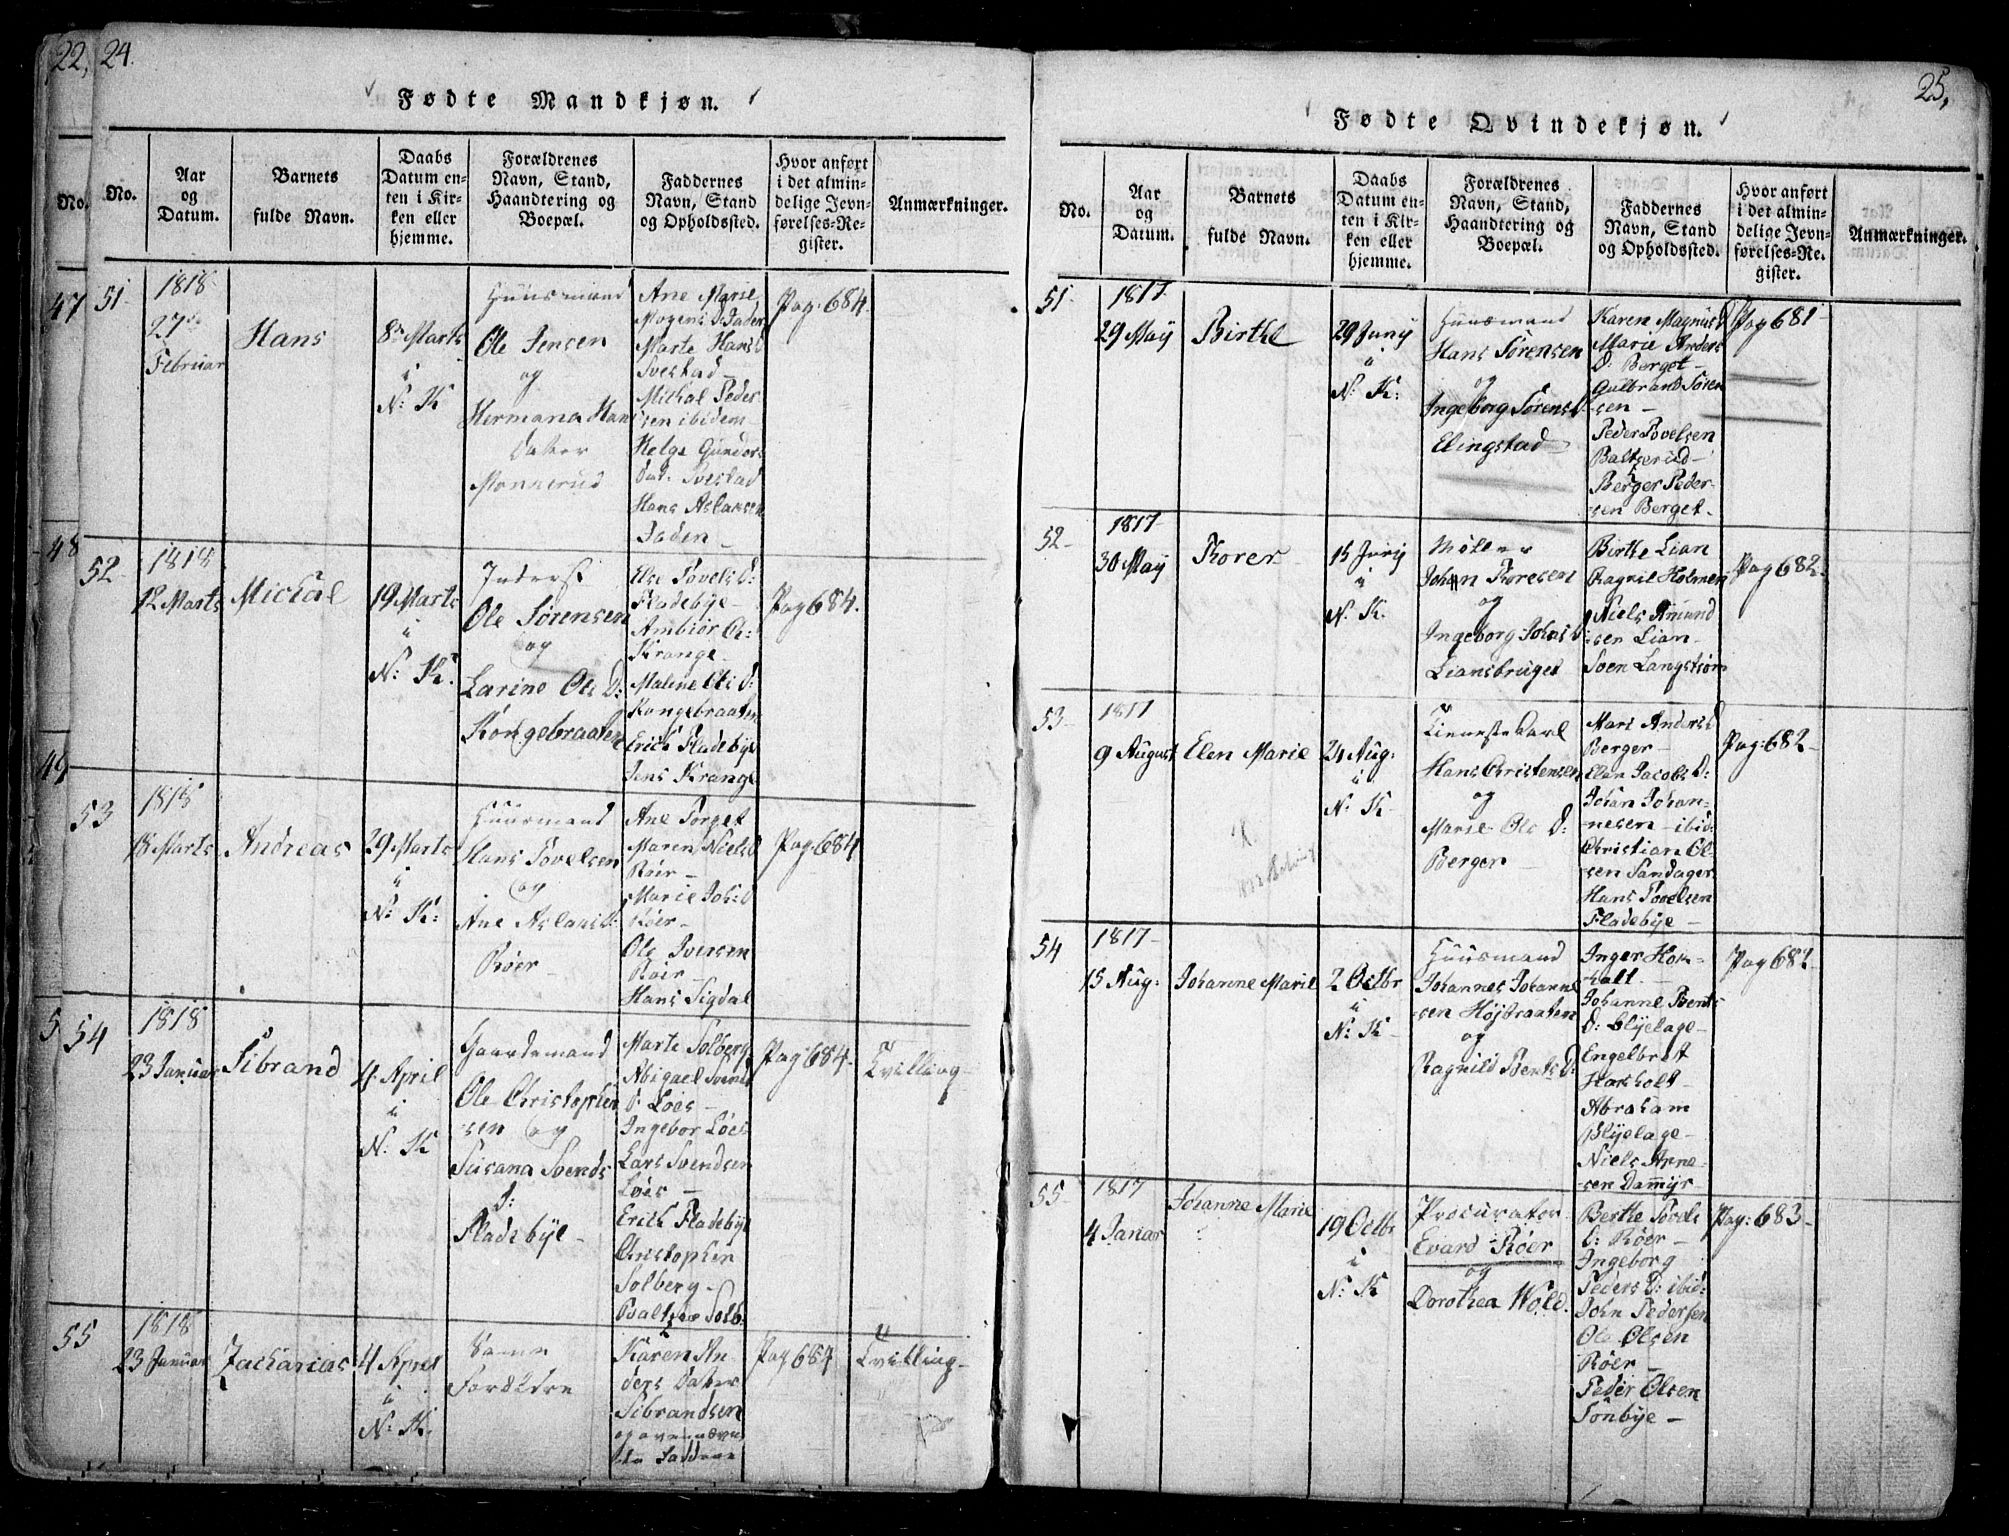 22, 24.
Fødte Mandkjøn.
No.
No.
Aar
og
Datum.
Barnets
fulde Navn.
Daabs
Datum en-
ten i Kir-
ken eller
hjemme.
Forældrenes
Navn, Stand,
Haandtering og
Boepæl.
Faddernes
Navn, Stand
og Opholdssted.
Hvor anført
i det almin-
delige Jevn-
førelses-Re-
gister.
Anmærkninger.
47
48
49
5
51
1818
27de
Februar
Hans
8de Marts
i
N: K
Huusmand
Ole Jensen
og
Hermana Hans
Datter
Monnerud
Ane Marie
Mogens D: Jaden
Marte Hans D
Svestad
Michal Peder
sen ibidem
Helge Gundors
Dat. Svestad
Hans Aslaksen
Jaden
Pag: 684
52
1818
12 Marts
Michal
19 Marts
i
N: K.
Inderst
Ole Sørensen
og
Larine Ols D:
Kongebraaten
Else Povels D:
Fladebye
Ambiør O:
Krange
Malene Ols D:
Kongebraaten
Erich Fladebye
Jens Krange
Pag 684.
53
1818
18 Marts
Andreas
29 Marts
i
N: K:
Huusmand
Hans Povelsen
og
Ane Aslaks D:
Røer
Ane Torget
Maren Niels D
Røer
Marie Joh: D
Røer
Ole Iversen
Røer
Hans Sigdal
Pag 684
54
1818
23 Januar
Sibrand
4 April
i
N: K
Gaardemand
Ole Christophe
sen og
Susana Svends
D:
Fladebye
Marte Solberg
Abigael Svends
D: Løes
Ingebor Løes
Lars Svendsen
Løes
Erich Fladebye
Christopher
Solberg
Baltzer Solb:
Pag: 684
Tvilling
55
1818
23 Januar
Zacharias
4 April
i
N: K.
Samme
Forældre
Karen An
ders Datter
Sibrandsen
og ovennævn
te Faddere
Pag 684
Tvilling
25,
Fødte Qvindekjøn.
No.
Aar
og
Datum.
Barnets
fulde Navn.
Daabs
Datum en-
ten i Kir-
ken eller
hjemme.
Forældrenes
Navn, Stand,
Haandtering og
Boepæl.
Faddernes
Navn, Stand
og Opholdssted.
Hvor anført
i det almin-
delige Jevn-
førelses-Re-
gister.
Anmærkninger.
51
1817
29 May
Birthe
29 Juny
i
N: K:
Huusmand
Hans Sørensen
og
Ingeborg Sørens D
Elingstad
Karen Magnus D
Marie Anders
D: Berget
Gulbrand Søren
sen
Peder Povelsen
Baltzerud
Berger Peder-
sen Berget
Pag 681
52
1817
30 May
Korer
15 Juny
i
N: K.
Møller
Johan Koresen
og
Ingeborg Johns D
Liansbruget
Birthe Lian
Ragnil Holmen
Niels Amund
sen Lian
Soen Langstiør
Pag 682
53
1817
9 August
Elen Marie
24 Aug:
i
N: K
Tienestekarl
Hans Christensen
og
Marie Ols D:
Berger
Mari Anders D
Berger
Elen Jacobs D:
Johan Johan-
nesen ibid:
Christian Ol-
sen Sandager
Hans Povelsen
Fladebye
Pag: 682
54
1817
15 Aug:
Johanne Marie
2 Octbr
i
N: K
Huusmand
Johannes Johanne
sen Højbraaten
og
Ragnild Bents D:
Inger Hor-
holt
Johanne Bents
D: Blyelage
Engelbret
Horsholt
Abraham
Blyelage
Niels Arne-
sen Dammyr
Pag 682
55
1817
4 Janar
Johanne Marie
19 Octbr
i
N: K
Procurator
Evard Røer
og
Dorothea Wold.
Berthe Povels
D: Røer
Ingeborg
Peders D: ibid:
John Pedersen
Ole Olsen
Røer
Peder Olsen
Sonbye
Pag: 683